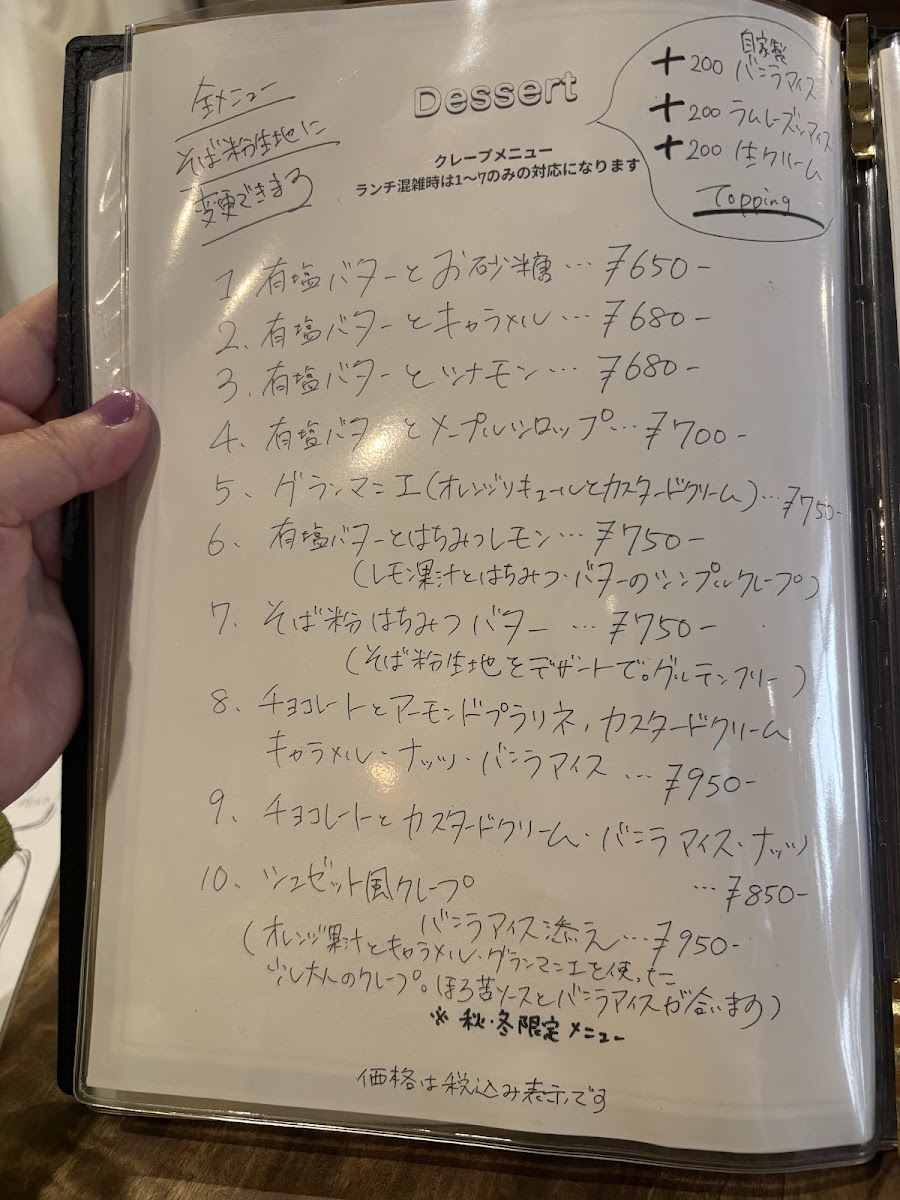 Dessert
クレープメニュー
ランチ混雑時は1〜7のみの対応になります
全メニュー
そば粉生地に
変更できます
+200 自家製バニラアイス
+200 ラムレーズンアイス
+200 生クリーム
Topping
1. 有塩バターとお砂糖… ¥650-
2. 有塩バターとキャラメル… ¥680-
3. 有塩バターとシナモン… ¥680-
4. 有塩バターとメープルシロップ… ¥700-
5、グランマニエ(オレンジリキュールとカスタードクリーム)… ¥750-
6、有塩バターとはちみつレモン… ¥750-
(レモン果汁とはちみつ・バターのシンプルクレープ)
7. そば粉はちみつバター … ¥750-
(そば粉生地をデザートで。グルテンフリー)
8. チョコレートとアーモンドプラリネ、カスタードクリーム
キャラメル・ナッツ・バニラアイス … ¥950-
9、チョコレートとカスタードクリーム・バニラアイス・ナッツ
… ¥850-
10、シュゼット風クレープ
バニラアイス添え… ¥950-
(オレンジ果汁とキャラメル、グランマニエを使った
少し大人のクレープ。ほろ苦ソースとバニラアイスが合います)
※ 秋・冬限定メニュー
価格は税込み表示です